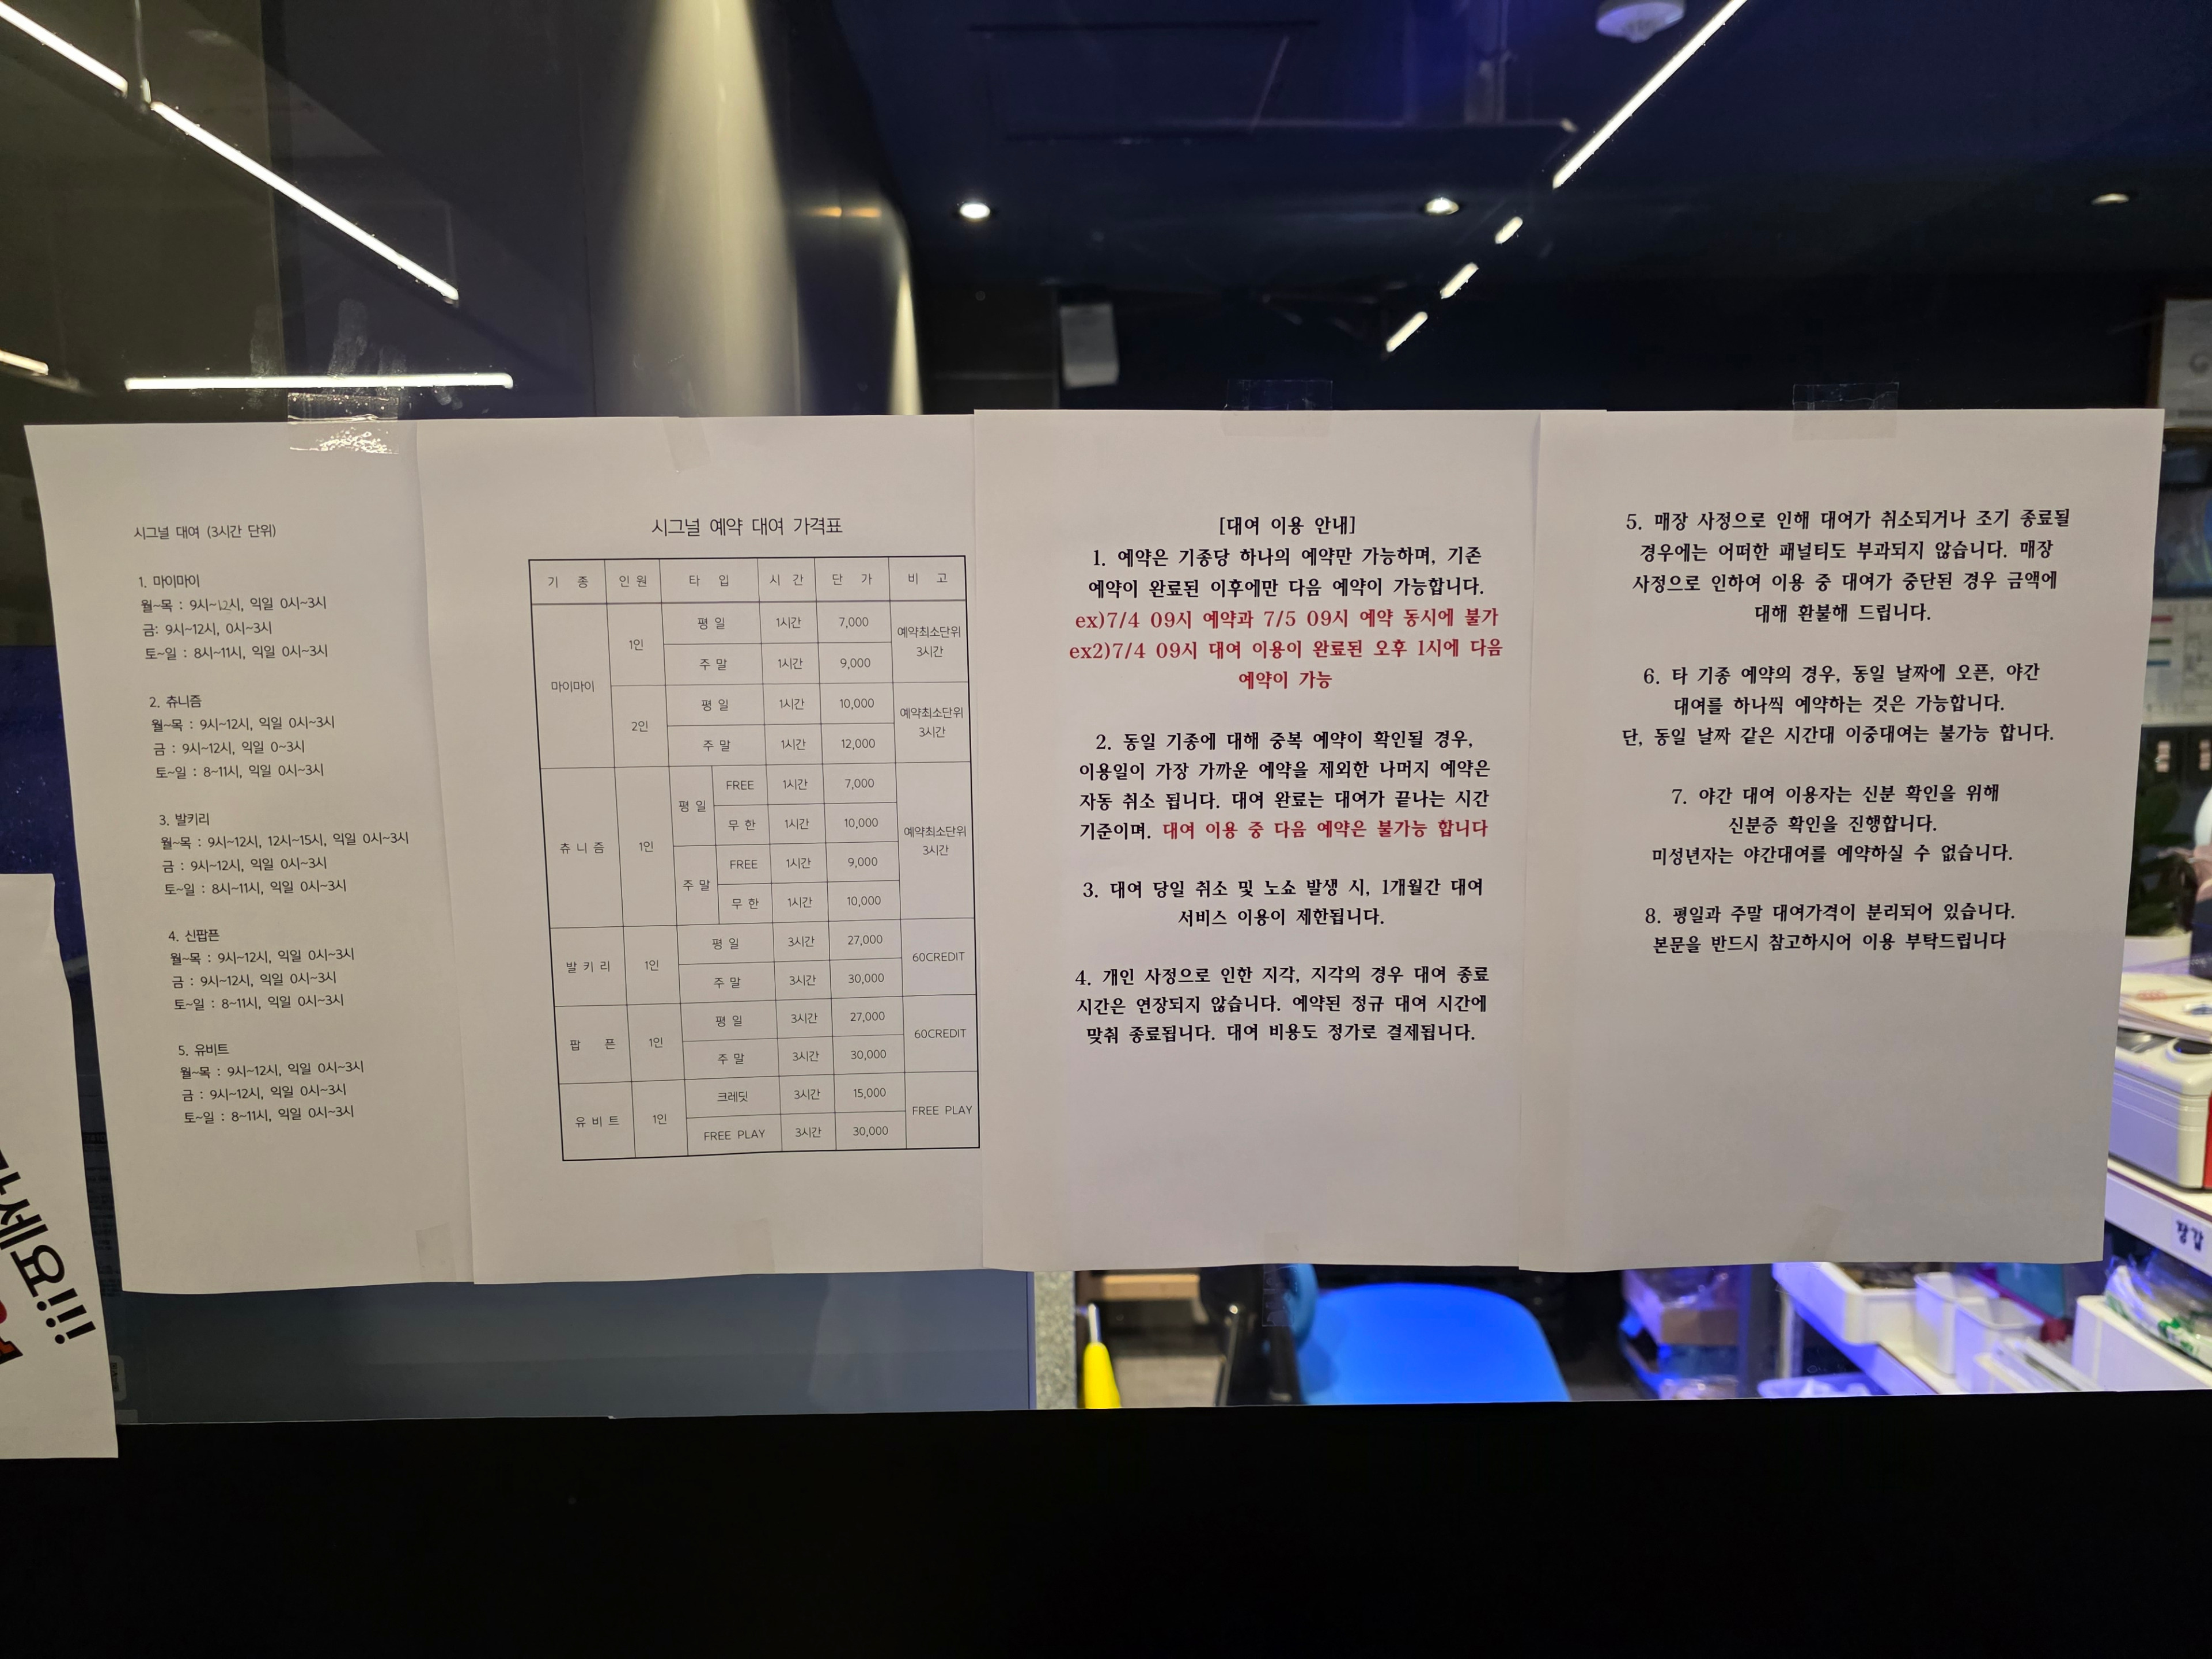 시그널 대여 (3시간 단위)
1. 마이마이
월~목 : 9시~12시, 익일 0시~3시
금: 9시~12시, 0시~3시
토~일 : 8시~11시, 익일 0시~3시
2. 츄니즘
월~목 : 9시~12시, 익일 0시~3시
금 : 9시~12시, 익일 0~3시
토~일 : 8~11시, 익일 0시~3시
3. 발키리
월~목 : 9시~12시, 12시~15시, 익일 0시~3시
금 : 9시~12시, 익일 0시~3시
토~일 : 8시~11시, 익일 0시~3시
4. 신팝픈
월~목 : 9시~12시, 익일 0시~3시
금 : 9시~12시, 익일 0시~3시
토~일 : 8~11시, 익일 0시~3시
5. 유비트
월~목 : 9시~12시, 익일 0시~3시
금 : 9시~12시, 익일 0시~3시
토~일 : 8~11시, 익일 0시~3시
시그널 예약 대여 가격표
기 종 인 원 타 입 시 간 단 가 비 고
마이마이 1인 평 일 1시간 7,000 예약최소단위 3시간
주 말 1시간 9,000
2인 평 일 1시간 10,000 예약최소단위 3시간
주 말 1시간 12,000
츄 니 즘 1인 평 일 FREE 1시간 7,000 예약최소단위 3시간
무 한 1시간 10,000
주 말 FREE 1시간 9,000
무 한 1시간 10,000
발 키 리 1인 평 일 3시간 27,000 60CREDIT
주 말 3시간 30,000
팝 픈 1인 평 일 3시간 27,000 60CREDIT
주 말 3시간 30,000
유 비 트 1인 크레딧 3시간 15,000 FREE PLAY
FREE PLAY 3시간 30,000
[대여 이용 안내]
1. 예약은 기종당 하나의 예약만 가능하며, 기존
예약이 완료된 이후에만 다음 예약이 가능합니다.
ex)7/4 09시 예약과 7/5 09시 예약 동시에 불가
ex2)7/4 09시 대여 이용이 완료된 오후 1시에 다음
예약이 가능
2. 동일 기종에 대해 중복 예약이 확인될 경우,
이용일이 가장 가까운 예약을 제외한 나머지 예약은
자동 취소 됩니다. 대여 완료는 대여가 끝나는 시간
기준이며. 대여 이용 중 다음 예약은 불가능 합니다
3. 대여 당일 취소 및 노쇼 발생 시, 1개월간 대여
서비스 이용이 제한됩니다.
4. 개인 사정으로 인한 지각, 지각의 경우 대여 종료
시간은 연장되지 않습니다. 예약된 정규 대여 시간에
맞춰 종료됩니다. 대여 비용도 정가로 결제됩니다.
5. 매장 사정으로 인해 대여가 취소되거나 조기 종료될
경우에는 어떠한 패널티도 부과되지 않습니다. 매장
사정으로 인하여 이용 중 대여가 중단된 경우 금액에
대해 환불해 드립니다.
6. 타 기종 예약의 경우, 동일 날짜에 오픈, 야간
대여를 하나씩 예약하는 것은 가능합니다.
단, 동일 날짜 같은 시간대 이중대여는 불가능 합니다.
7. 야간 대여 이용자는 신분 확인을 위해
신분증 확인을 진행합니다.
미성년자는 야간대여를 예약하실 수 없습니다.
8. 평일과 주말 대여가격이 분리되어 있습니다.
본문을 반드시 참고하시어 이용 부탁드립니다
세요!!!
장갑